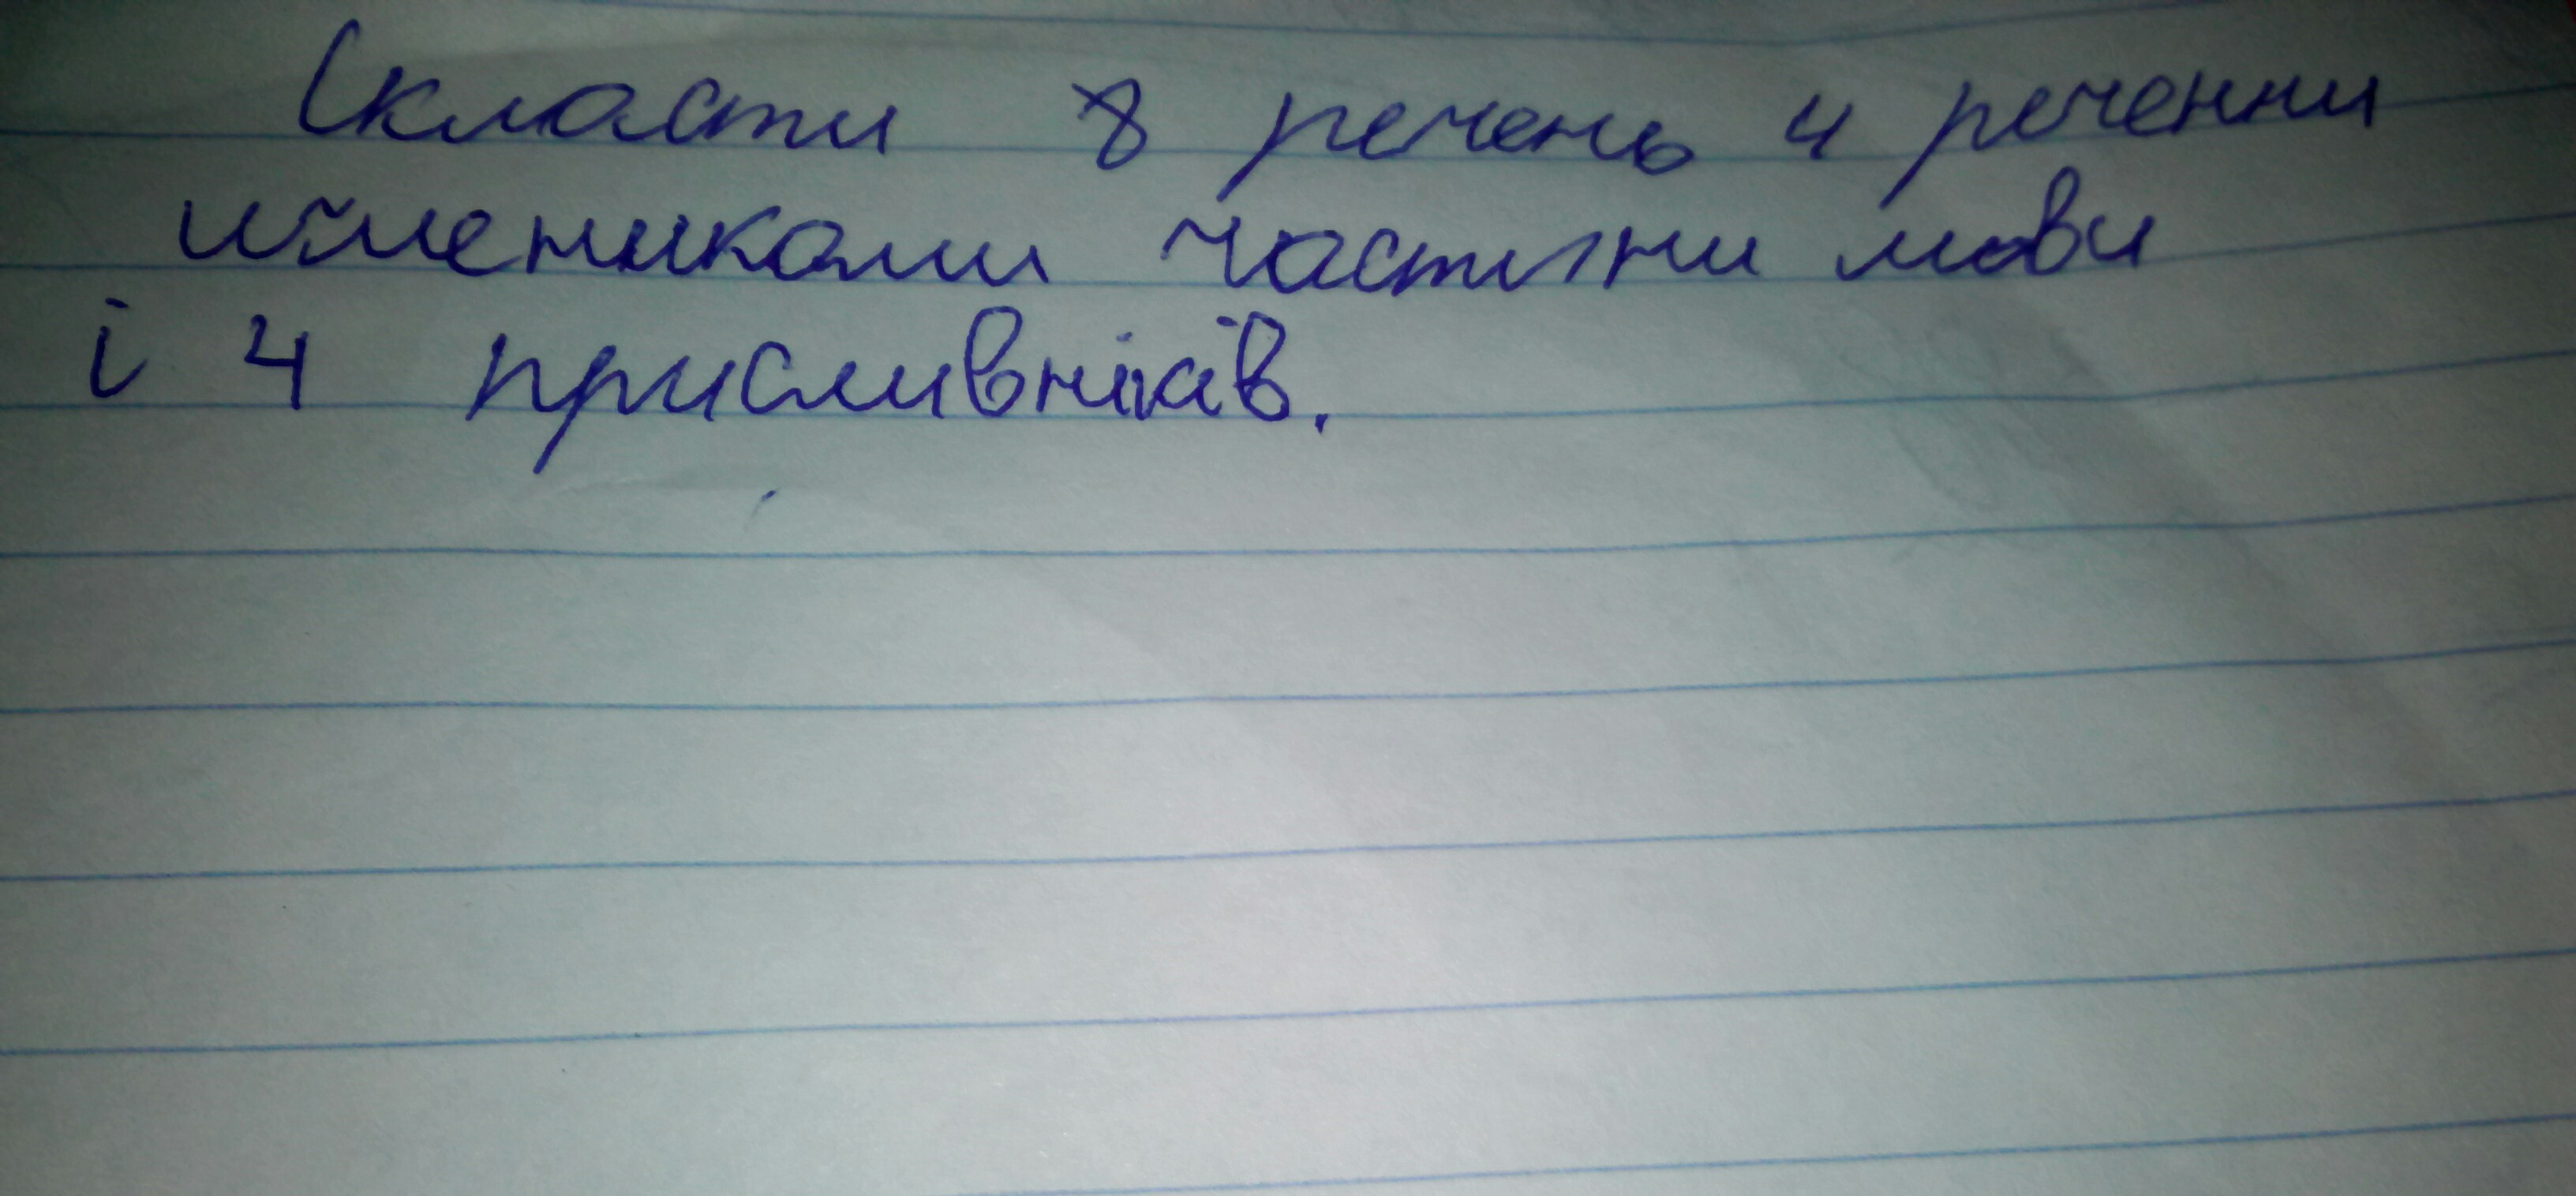 Скласти 8 речень 4 реченни
имениками частини мови
і 4 присливників.